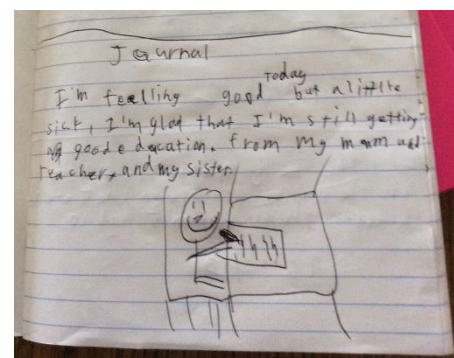 Journal
I'm feelling good today but alittle
sick, I'm glad that I'm still getting
ag good edecation. from my mom and
teacher, and my sister.